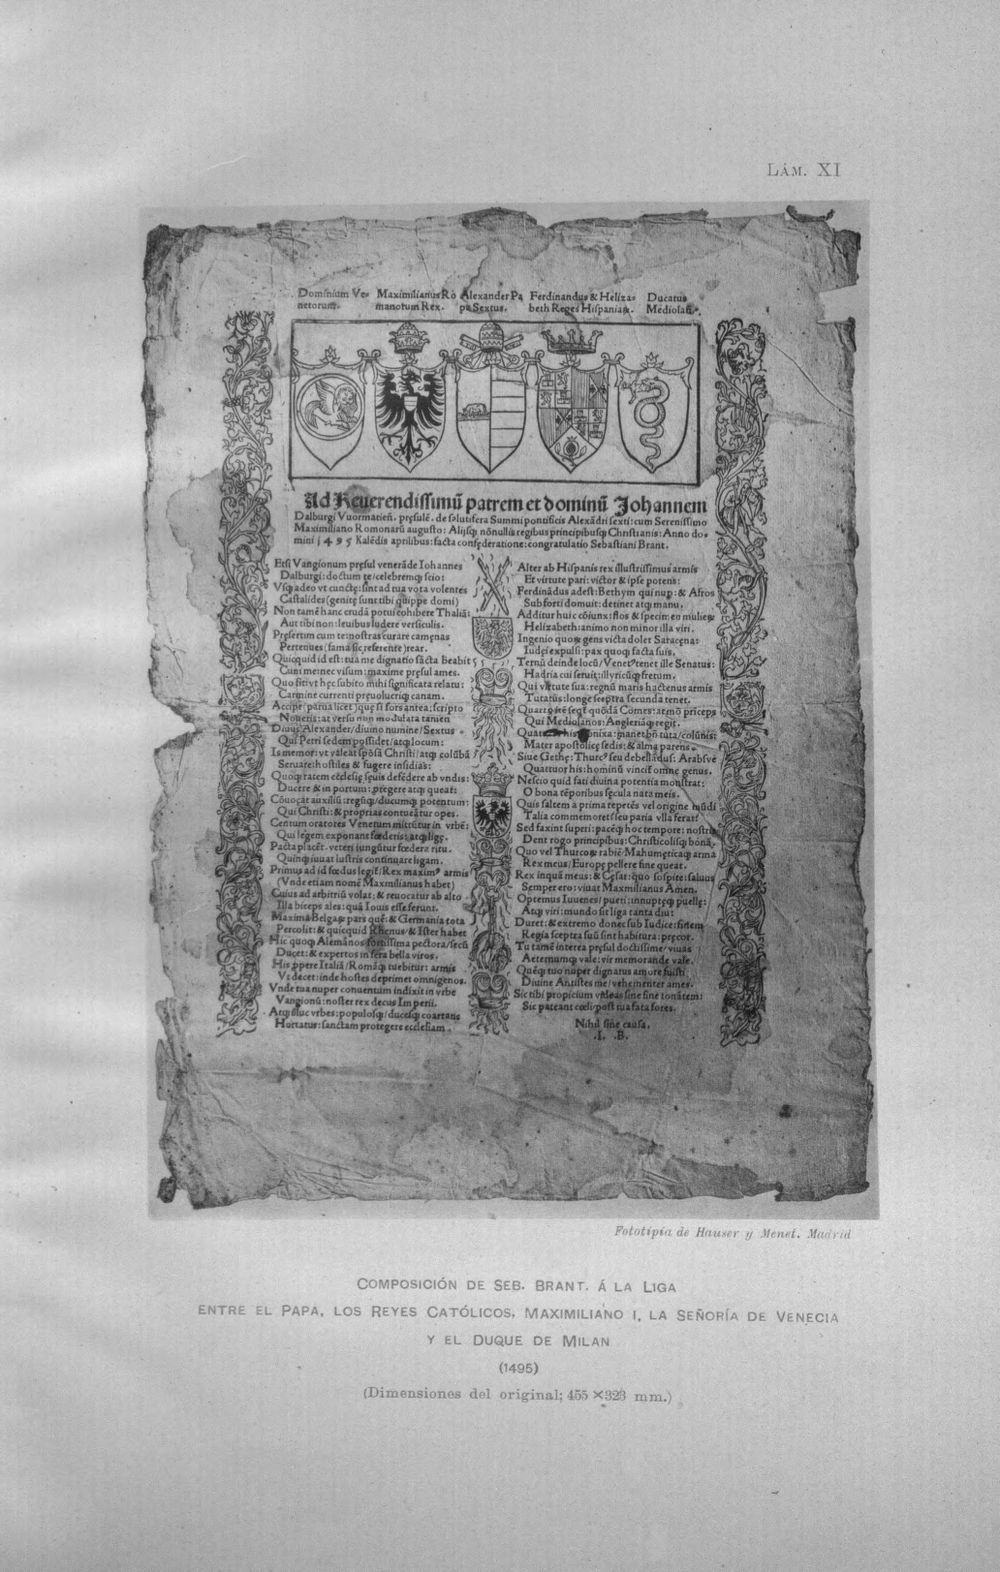 LÁM. XI
Dominium Ve-
netorum.
Maximilianus Ro
manorum Rex.
Alexander Pa
pa Sextus.
Ferdinandus & Heliza-
beth Reges Hispaniaꝝ.
Ducatus
Mediolań.
Ad Reuerendissimū patrem et dominū Johannem
Dalburgī Vuormatień. pręsulē. de salutifera Summi pontificis Alexādri sexti: cum Serenissimo
Maximiliano Romanorū augusto: Alijsqꝫ nōnullis regibus principibusqꝫ Christianis: Anno do-
mini 1495 Kalēdis aprilibus: facta confęderatione: congratulatio Sebastiani Brant.
Etsi Vangionum pręsul venerāde Iohannes
Dalburgi: doctum te/celebremqꝫ scio:
Vsqꝫ adeo vt cunctę: sint ad tua vota volentes
Castalides (genitę sunt tibi quippe domi)
Non tamē hanc crudā potui cohibere Thaliā:
Aut tibi non: leuibus ludere versiculis.
Pręsertim cum te: nostras curare camęnas
Pertenues (fama sic referente) rear.
Quicquid id est: tua me dignatio facta beabit
Cum me: nec visum: maxime pręsul ames.
Quo fit vt hęc subito mihi significata relatu:
Carmine currenti pręuolucriqꝫ canam.
Accipe (parua licet) quę si fors antea: scripto
Noueris: at versu non modulata tamen
Diuus Alexander/diuino numine/Sextus
Qui Petri sedem possidet/atqꝫ locum:
Is memor: vt valeat spōsā Christi/atqꝫ colūbā
Seruare: hostiles & fugere insidias:
Quoqꝫ ratem ecclesię sęuis defēdere ab vndis:
Ducere & in portum: ꝑgere atqꝫ queat:
Cōuocat auxiliū: regūqꝫ/ducumqꝫ potentum:
Qui Christi: & proprias contueātur opes.
Centum oratores Venetum mittūtur in vrbē:
Qui legem exponant fœderis: atqꝫ ligę.
Pacta placēt. veteri iungūtur fœdera ritu.
Quinqꝫ iuuat lustris continuare ligam.
Primus ad id fœdus legitur/Rex maximus armis
(Vnde etiam nomē Maximilianus habet)
Cuius ad arbitriū volat: & reuocatur ab alto
Illa biceps ales: quā Iouis esse ferunt.
Maxima Belgaꝝ pars quē: & Germania tota
Percolit: & quicquid Rhenus/& Ister habet
Hic quoqꝫ Alemānos fortissima pectora/secū
Ducet: & expertos in fera bella viros.
His ꝓpere Italiā/Romāqꝫ tuebitur: armis
Vt decet: inde hostes deprimet omnigenos.
Vnde tua nuper conuentum indixit in vrbe
Vangionū: noster rex decus Imperii.
Atqꝫ illuc vrbes: populosqꝫ/ducesqꝫ coartans
Hortatus: sanctam protegere ecclesiam.
Alter ab Hispanis rex illustrissimus armis
Et virtute pari: victor & ipse potens:
Ferdinādus adest: Bethym qui nup: & Afros
Sub forti domuit: detinet atqꝫ manu.
Additur huic cōiunx: flos & specimen mulieꝝ
Helizabeth: animo non minor illa viri.
Ingenio quoꝝ gens victa dolet Saracena:
Iudęi expulsi: pax quoqꝫ facta suis.
Ternū deinde locū/Venetus tenet ille Senatus:
Hadria cui seruit: illyricūqꝫ fretum.
Qui virtute sua: regnū maris hactenus armis
Tutatus: longe sceptra secunda tenet.
Quartus seq̄tur quōdā Comes: at mō prīceps
Qui Mediolanos: Angleriāqꝫ regit.
Quatuor his connixa: manet bn̄ tuta/colūnis:
Mater apostolicę sedis: & alma parens.
Siue Gethę: Thurcus seu debelladus: Arabsve
Quattuor his: hominū vincitur omne genus.
Nescio quid fati diuina potentia monstrat:
O bona tēporibus sęcula nata meis.
Quis saltem a prima repetēs vel origine mūdi
Talia commemoret/seu paria vlla ferat?
Sed faxint superi: pacēqꝫ hoc tempore: nostris
Dent rogo principibus: Christicolisqꝫ bonā.
Quo vel Thurcoꝝ rabiē/Mahumeticaqꝫ arma
Rex meus/Europę pellere fine queat.
Rex inquā meus: & Cęsar: quo sospite: saluus
Semper ero: viuat Maximilianus Amen.
Optemus Iuuenes/pueri: innuptęqꝫ puellę:
Atqꝫ viri: mundo sit liga tanta diu:
Duret: & extremo donec sub Iudice: finem
Regia sceptra suū sint habitura: precor.
Tu tamē interea pręsul doctissime/viuas
Aeternumqꝫ vale: vir memorande vale.
Quēqꝫ tuo nuper dignatus amore fuisti
Diuine Antistes me/vehementer ames.
Sic tibi propicium videas sine fine tonātem:
Sic pateant cœli: post tua fata fores.
Nihil sine causa.
.I. .B.
Fototipia de Hauser y Menet. Madrid
COMPOSICIÓN DE SEB. BRANT. Á LA LIGA
ENTRE EL PAPA, LOS REYES CATÓLICOS, MAXIMILIANO I, LA SEÑORÍA DE VENECIA
Y EL DUQUE DE MILAN
(1495)
(Dimensiones del original; 455 × 323 mm.)